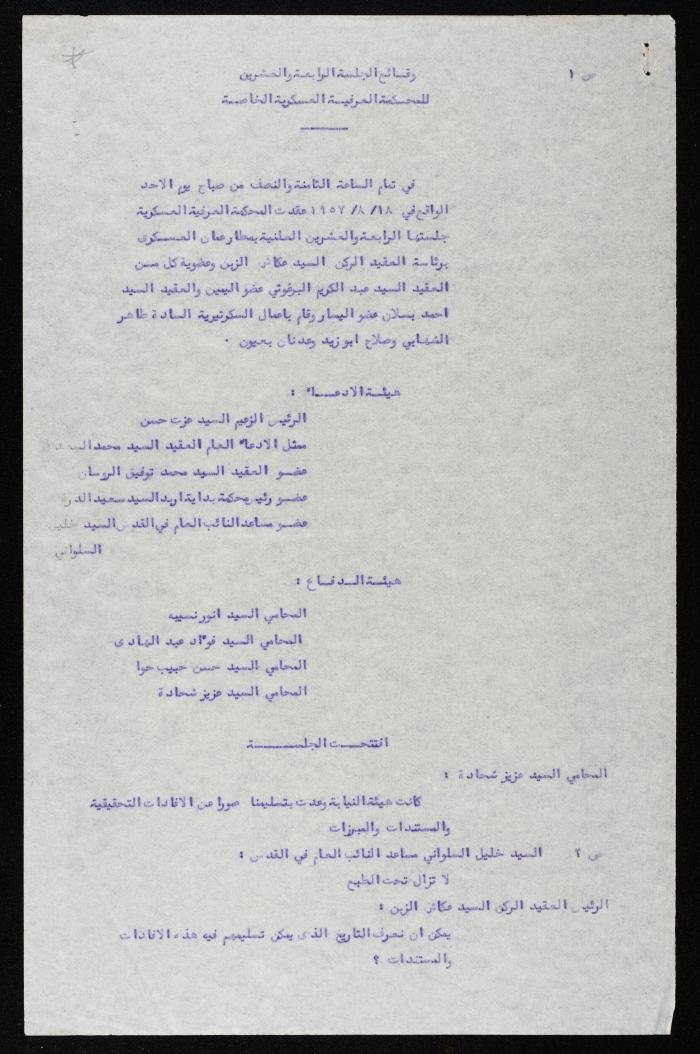 ص ١
وقائع الجلسة الرابعة والعشرين
للمحكمة العرفية العسكرية الخاصة
في تمام الساعة الثامنة والنصف من صباح يوم الاحد
الواقع في ١٨/ ٨/ ١٩٥٧ عقدت المحكمة العرفية العسكرية
جلستها الرابعة والعشرين العلنية بمطار عمان العسكرى
برئاسة العقيد الركن السيد عكاش الزبن وعضوية كل من
العقيد السيد عبد الكريم البرغوثي عضو اليمين والعقيد السيد
احمد بسلان عضو اليسار وقام باعمال السكرتيرية السادة طاهر
الشهابي وصلاح ابو زيد وعدنان بعيون .
هيئة الادعاء :
الرئيس الزعيم السيد عزت حسن
ممثل الادعاء العام العقيد السيد محمد السعد
عضو العقيد السيد محمد توفيق الروسان
عضو رئيس محكمة بداية اربد السيد سعيد الدرة
عضو مساعد النائب العام في القدس السيد خليل
السلواني
هيئة الدفاع :
المحامي السيد انور نسيبه
المحامي السيد فؤاد عبد الهادى
المحامي السيد حسن حبيب حوا
المحامي السيد عزيز شحادة
افتتحت الجلسة
المحامي السيد عزيز شحادة :
كانت هيئة النيابة وعدت بتسليمنا صورا عن الافادات التحقيقية
والمستندات والمبرزات
ص ٢ السيد خليل السلواني مساعد النائب العام في القدس :
لا تزال تحت الطبع
الرئيس العقيد الركن السيد عكاش الزبن :
يمكن ان نعرف التاريخ الذى يمكن تسليمهم فيه هذه الافادات
والمستندات ؟